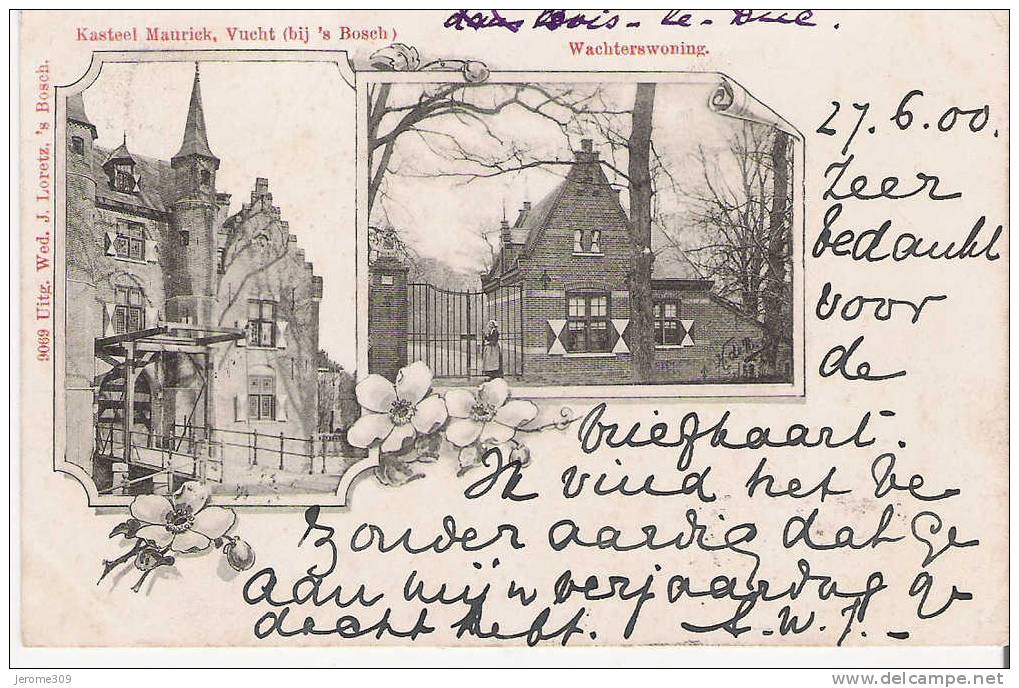 dans Bois-le-Duc.
Kasteel Maurick, Vucht (bij 's Bosch)
Wachterswoning.
9069 Uitg. Wed. J. Loretz, 's Bosch.
27.6.00.
Zeer
bedankt
voor
de
briefkaart.
Ik vind het be
zonder aardig dat Ge
aan mijn verjaardag ge
dacht hebt. A.W.J.-
Jerome309
www.delcampe.net